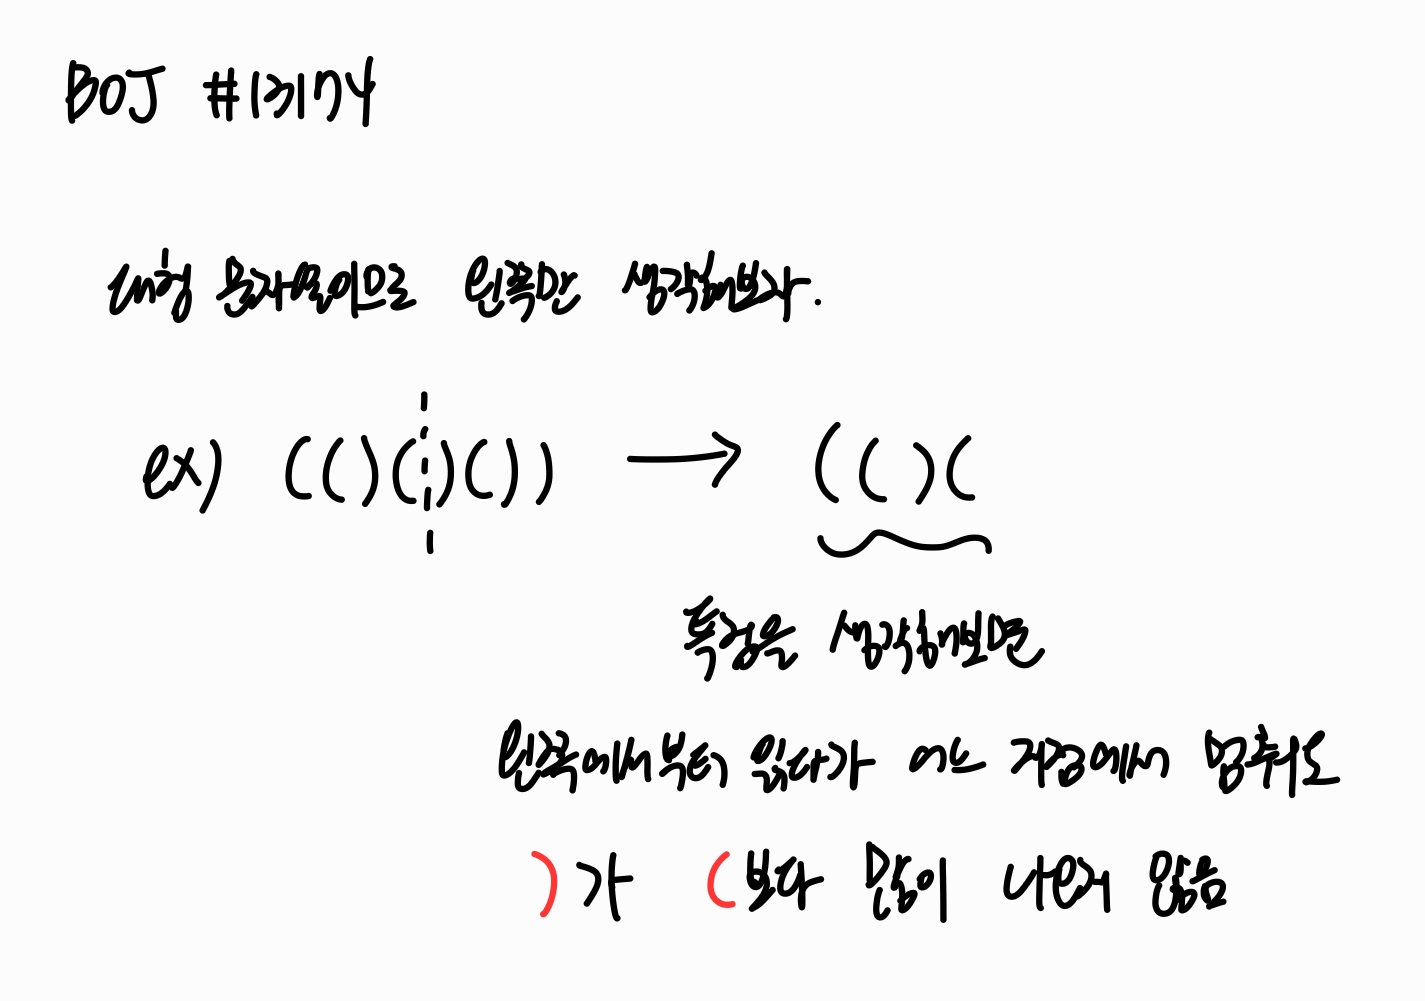 BOJ #13174
대칭 문자열이므로 왼쪽만 생각해보자.
ex) (()()()) → (()(
특징은 생각해보면
왼쪽에서부터 읽다가 어느 지점에서 멈춰도
)가 (보다 많이 나오지 않음